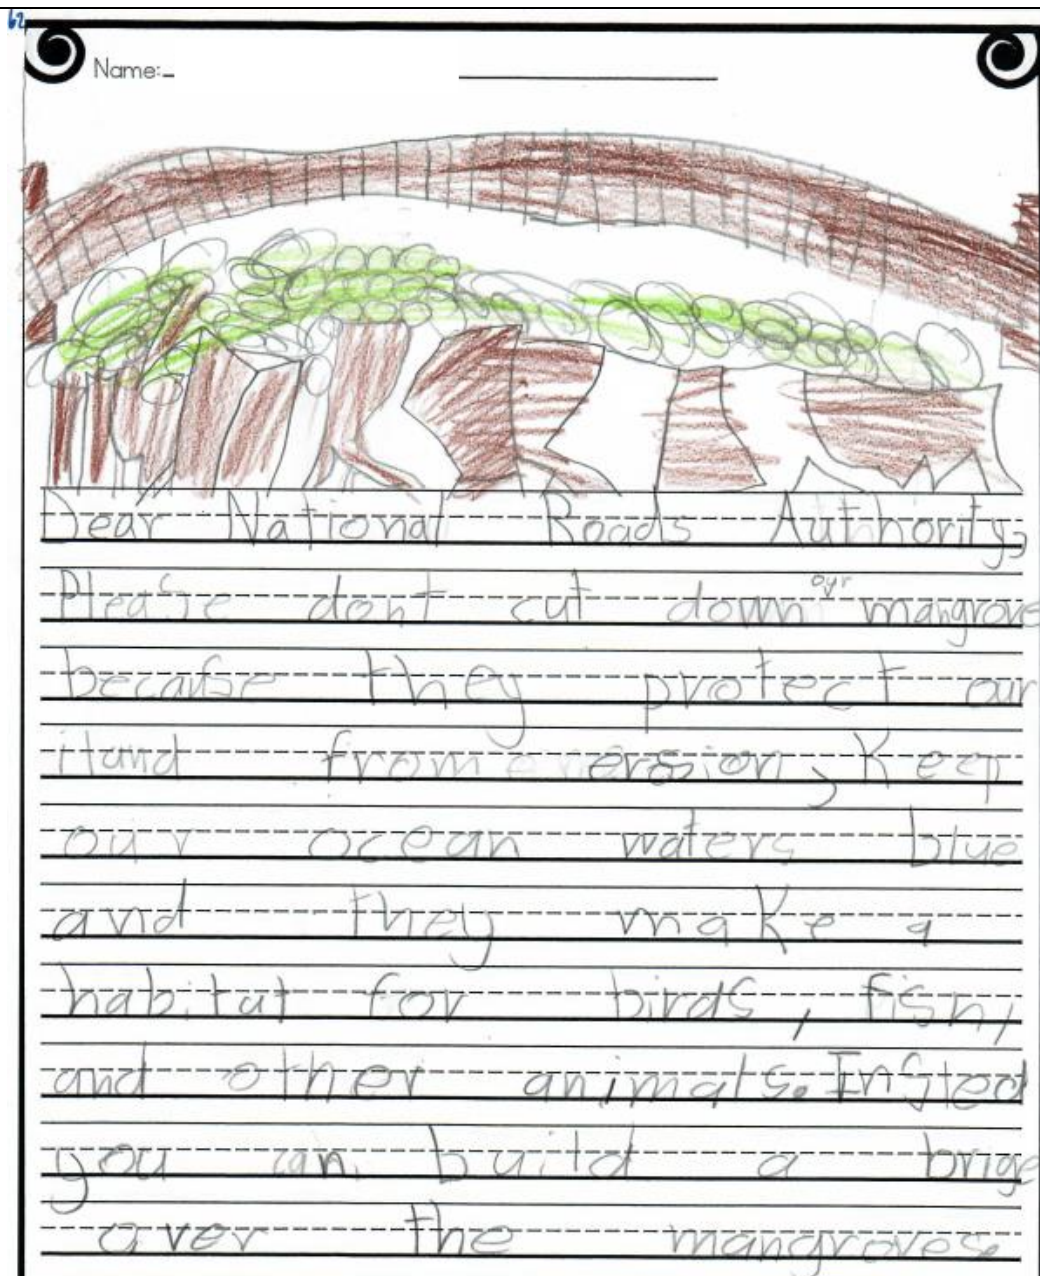 62
Name:
Dear National Roads Authority,
Please dont cut down our mangrove
because they protect our
iland from erosion, Keep
our ocean waters blue
and they make a
habitat for birds, fish,
and other animals. Insted
you can build a brige
over the mangroves.